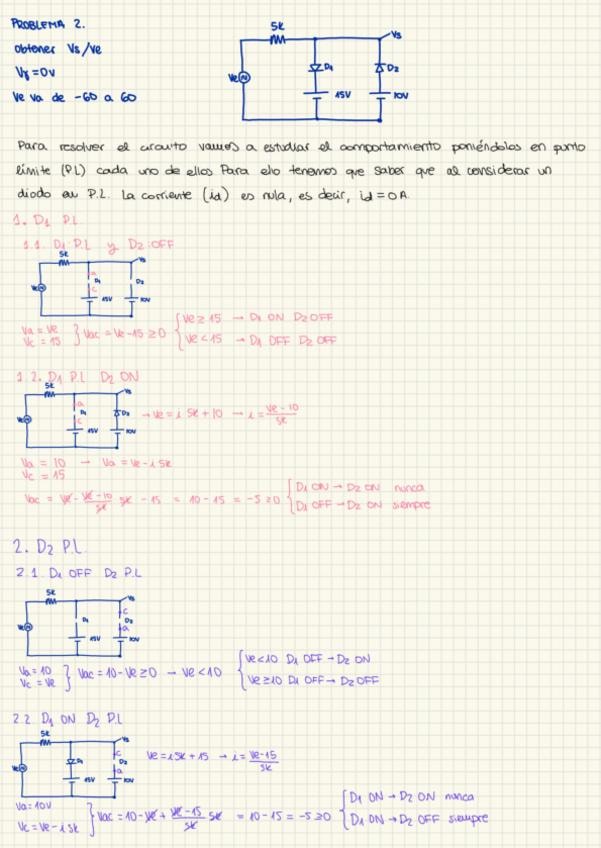 PROBLEMA 2.
obtener Vs/Ve
Vγ = 0V
Ve va de -60 a 60
5k
Vs
Ve
D1
D2
15V
10V
Para resolver el circuito vamos a estudiar el comportamiento poniéndolos en punto
límite (P.L) cada uno de ellos Para ello tenemos que saber que al considerar un
diodo en P.L. La corriente (id) es nula, es decir, id = 0 A.
1. D1 P.L
1.1. D1: P.L y D2: OFF
5k
Vs
a
Ve
D1
D2
c
15V
10V
Va = Ve
Vc = 15
} Vac = Ve - 15 ≥ 0
Ve ≥ 15 → D1 ON D2 OFF
Ve < 15 → D1 OFF D2 OFF
1.2. D1 P.L D2 ON
5k
Vs
a
Ve
D1
D2
c
15V
10V
→ Ve = i 5k + 10 → i = (Ve - 10)/5k
Va = 10 → Va = Ve - i 5k
Vc = 15
Vac = Ve - (Ve - 10)/5k 5k - 15 = 10 - 15 = -5 ≥ 0
D1 ON → D2 ON nunca
D1 OFF → D2 ON siempre
2. D2 P.L.
2.1. D1 OFF D2 P.L
5k
Vs
c
Ve
D1
D2
a
15V
10V
Va = 10
Vc = Ve
} Vac = 10 - Ve ≥ 0 → Ve < 10
Ve < 10 D1 OFF → D2 ON
Ve ≥ 10 D1 OFF → D2 OFF
2.2 D1 ON D2 P.L
5k
Vs
c
Ve
D1
D2
a
15V
10V
Ve = i 5k + 15 → i = (Ve - 15)/5k
Va = 10V
Vc = Ve - i 5k
} Vac = 10 - Ve + (Ve - 15)/5k 5k = 10 - 15 = -5 ≥ 0
D1 ON → D2 ON nunca
D1 ON → D2 OFF siempre